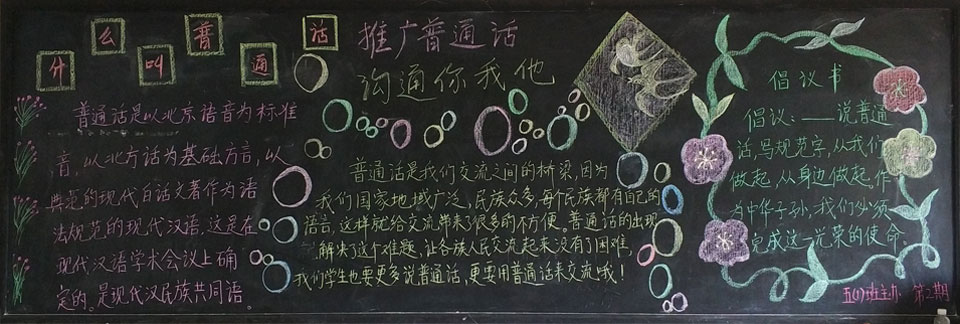 什么叫普通话
普通话是以北京语音为标准
音，以北方话为基础方言，以
典范的现代白话文著作为语
法规范的现代汉语。这是在
现代汉语学术会议上确
定的。是现代汉民族共同语。
推广普通话
沟通你我他
普通话是我们交流之间的桥梁，因为
我们国家地域广泛，民族众多，每个民族都有自己的
语言，这样就给交流带来了很多的不方便。普通话的出现
解决了这个难题，让各族人民交流起来没有了困难，
我们学生也要更多说普通话，更要用普通话来交流哦！
倡议书
倡议：——说普通
话，写规范字，从我们
做起，从身边做起，作
为中华子孙，我们必须
完成这一光荣的使命
五(1)班主办 第2期